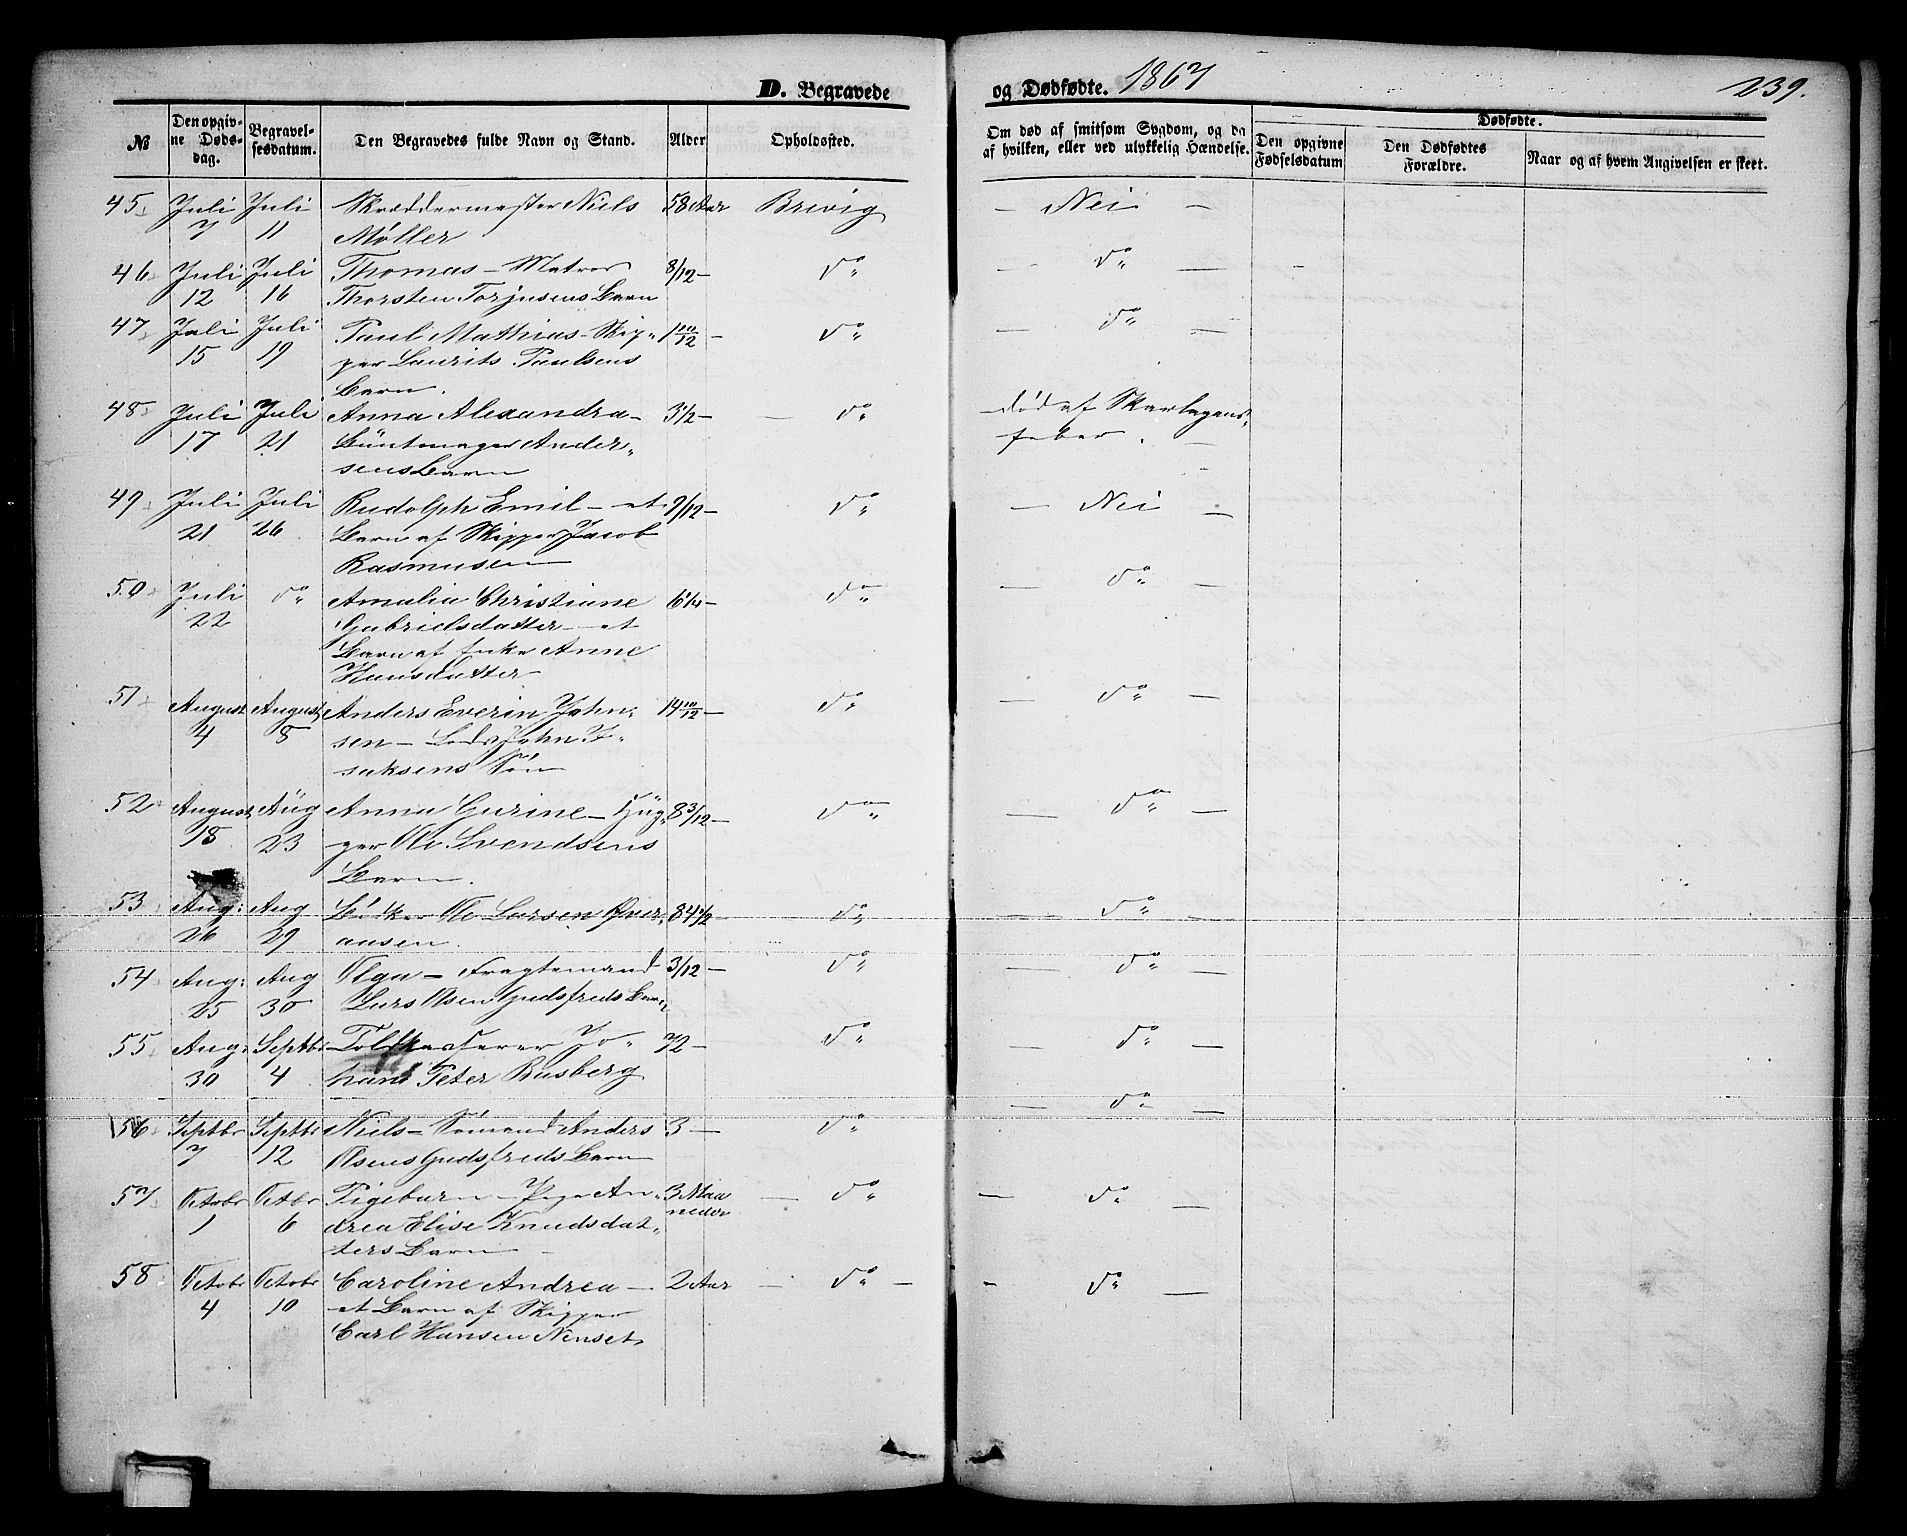 D. Begravede og Dødfødte. 1867 239.
№ Den opgivne Dødsdag. Begravelsesdatum. Den Begravedes fulde Navn og Stand. Alder Opholdssted. Om død af smitsom Sygdom, og da af hvilken, eller ved ulykkelig Hændelse. Dødfødte. Den opgivne Fødselsdatum Den Dødfødtes Forældre. Naar og af hvem Angivelsen er skeet.
45 Juli Juli Skræddermester Niels 58 Aar Brevig — Nei —
7 11 Møller
46 Juli Juli Thomas — Matros 8/12 — do — do —
12 16 Thorsten Torjusens Barn
47 Juli Juli Paul Mathias — Skip- 1 10/12 — do — do —
15 19 per Laurits Paulsens
Barn.
48 Juli Juli Anna Alexandra — 3 1/2 — — do — død af Skarlagens-
17 21 Buntmager Ander- feber. —
sens Barn
49 Juli Juli Rudolph Emil — et 9/12 — do — Nei —
21 26 Barn af Skipper Jacob
Rasmusen
50 Juli do Amalia Christiane 6 1/4 — do — do —
22 Gabrielsdatter — et
Barn af Enke Anne
Hansdatter
51 August August Anders Everin John- 14 10/12 — do — do —
4 8 sen — Lods John I-
saksens Søn
52 August Aug Anna Gurine — Hug- 8 3/12 — do — do —
18 23 ger Ole Svendsens
Barn.
53 Aug: Aug Bødker Ole Larsen Øver- 84 1/2 — do — do —
26 29 aasen.
54 Aug: Aug Olga — Fragtemand 3/12 — do — do —
25 30 Lars Olsen Gudsfreds Barn
55 Aug: Septbr Toldkasserer Jo- 72 — do — do —
30 4 hans Peter Rasberg
56 Septbr Septbr Niels — Sømand Anders 3 — do — do —
7 12 Olsens Gudsfreds Barn
57 Octobr Octbr Pigebarn — Pige An- 3 Maa — do — do —
1 6 drea Elise Knudsdat- neder
ters Barn
58 Octobr Octobr Caroline Andrea — 2 Aar — do — — do —
4 10 et Barn af Skipper
Carl Hansen Nenset